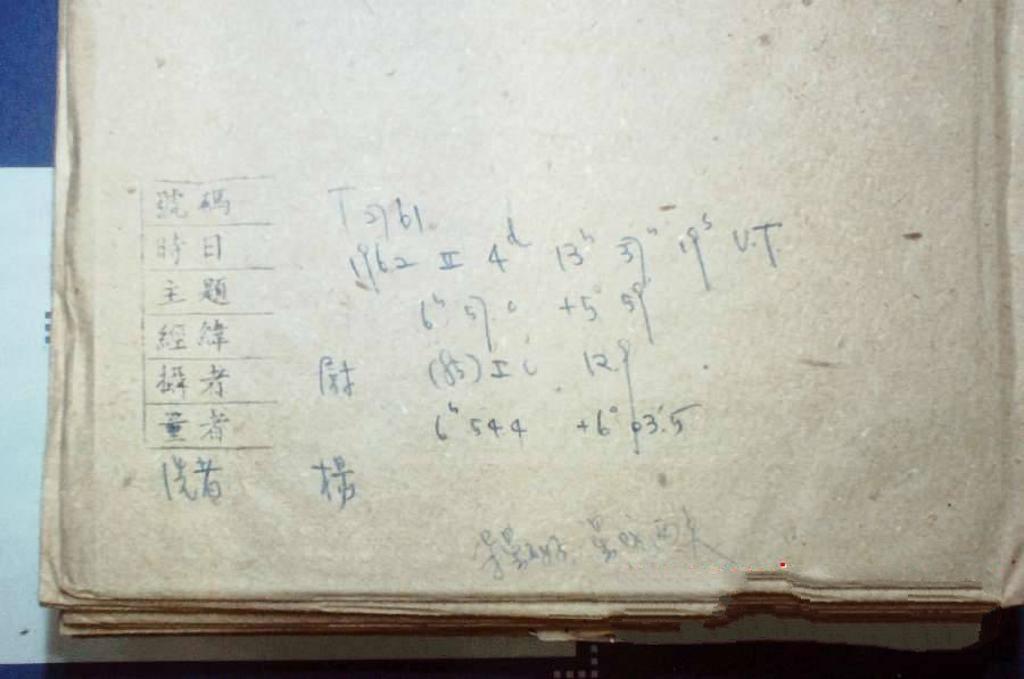 號碼 T 2961
時日 1962 II 4d 13h 39m 19s U.T.
主題 6h 59.0 +5° 59
經緯
攝者 尉 (85) I 12.9
量者 6h 54.4 +6° 03.5
洗者 楊